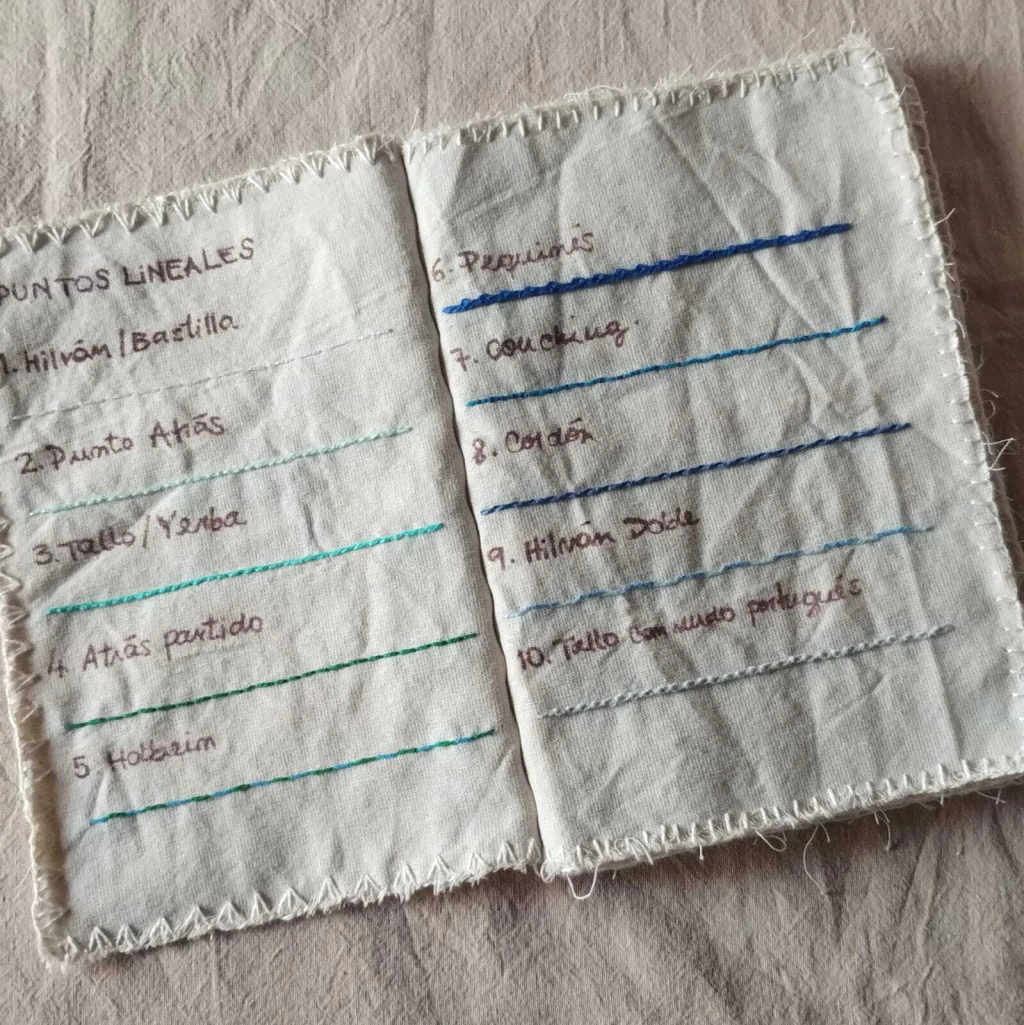 PUNTOS LINEALES
1. Hilván/Bastilla
2. Punto Atrás
3. Tallo/Yerba
4. Atrás partido
5. Holbein
6. Pequinés
7. Couching.
8. Cordón
9. Hilván Doble
10. Tallo con nudo portugués